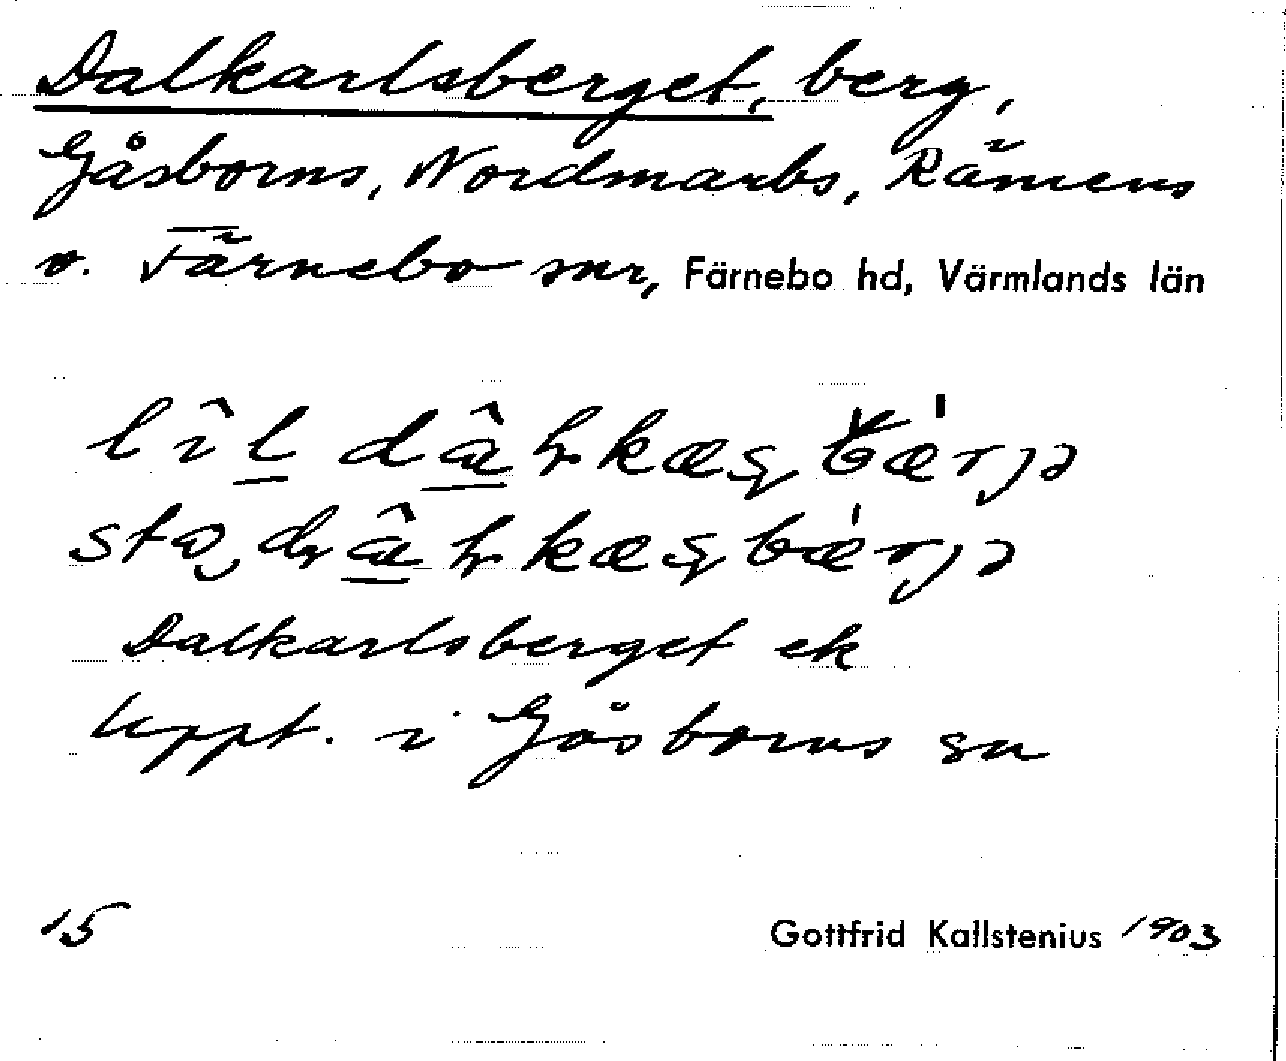 Dalkarlsberget, berg,
Gåsborns, Nordmarks, Rämens
o. Färnebo snr, Färnebo hd, Värmlands län
Dalkarlsberget ek
Uppt. i Gåsborns sn
15 Gottfrid Kallstenius 1903